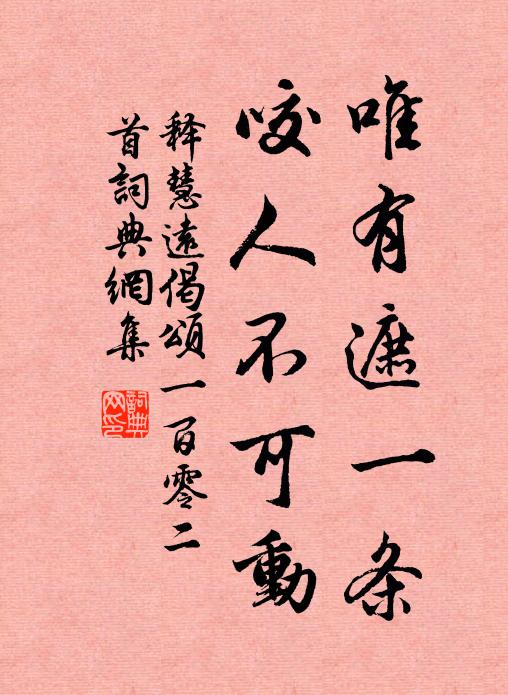 唯有遮一条
咬人不可動
释慧遠偈頌一百零二
首詞典網集
詞典网印